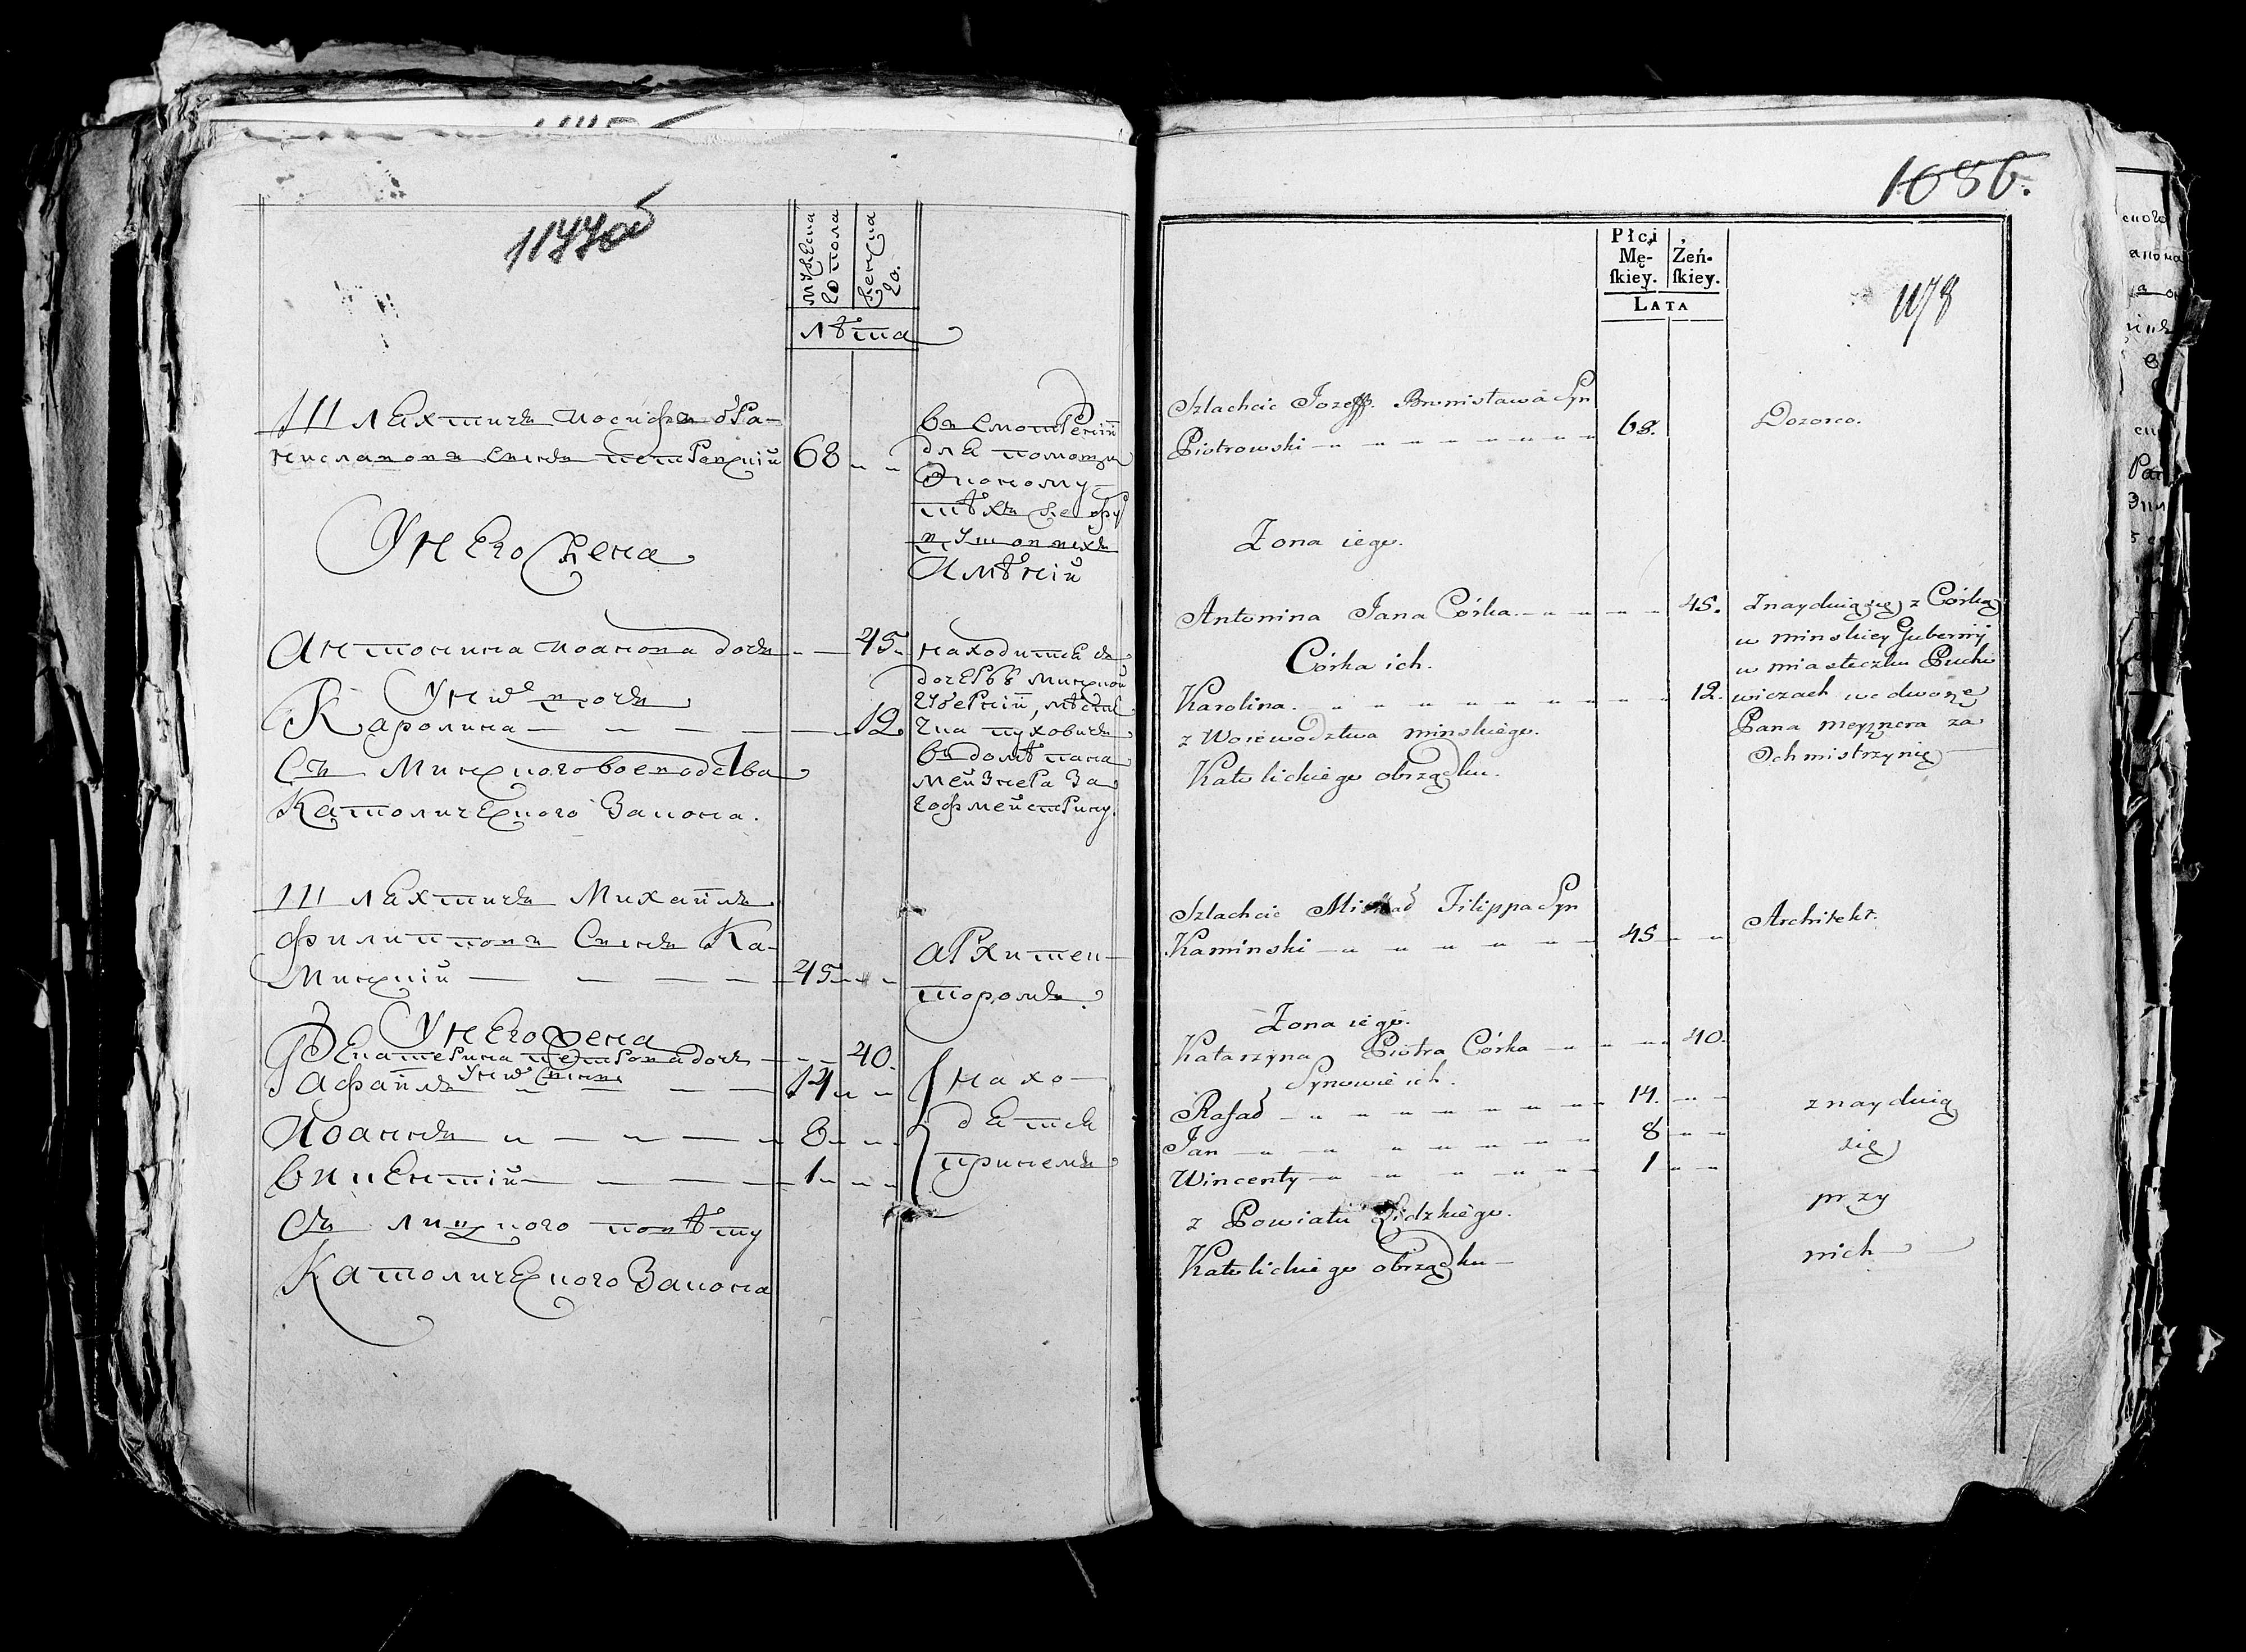 1177 об
мужеска
го пола
женска
го.
лѣта
Шляхтичъ иосифъ бра-
ниславовъ сынъ петровскiй 68
въ смотренiи
для помощи
Эконому
тѣхъ же
имѣнiй
У него жена
Антонина иоанова дочь 45.
У них дочь
Каролина 12
находится съ
дочерью минской
губернiи, мѣстеч
ка пуховичъ
въ домѣ пана
мейзнера за
гофмейстрину.
Съ Минского воеводства
Католического закона.
Шляхтичъ Михайлъ
филиповъ сынъ Ка-
минскiй 45
архитек-
торомъ.
У него жена
Екатерина петрова дочь 40.
У них сыны
Рафайлъ 14
Иоаннъ 8
викентiй 1
нахо-
дятся
при немъ
Съ лидского повѣту
Католического закона
1086.
Płci
Mę-
ſkiey.
Żeń-
ſkiey.
LATA
1178
Szlachcic Jozeff Bronisława Syn
Piotrowski 68.
Dozorco.
Żona iego.
Antonina Jana Córka 45.
Znayduią się z Córką
w minskiey Gubernij
w miasteczku Puchо
wiczach we dworze
Pana meyznera za
Ochmistrzynię
Córka ich.
Karolina. 12.
z Woiewodztwa minskiego.
Katolickiego obrządku.
Szlachcic Michał Filippa Syn
Kaminski 45
Architekt.
Żona iego.
Katarzyna Piotra Córka 40.
Synowie ich.
Rafał 14.
Jan 8
Wincenty 1
znayduią
się
przy
nich
z Powiatu Lidzkiego.
Katolickiego obrządku